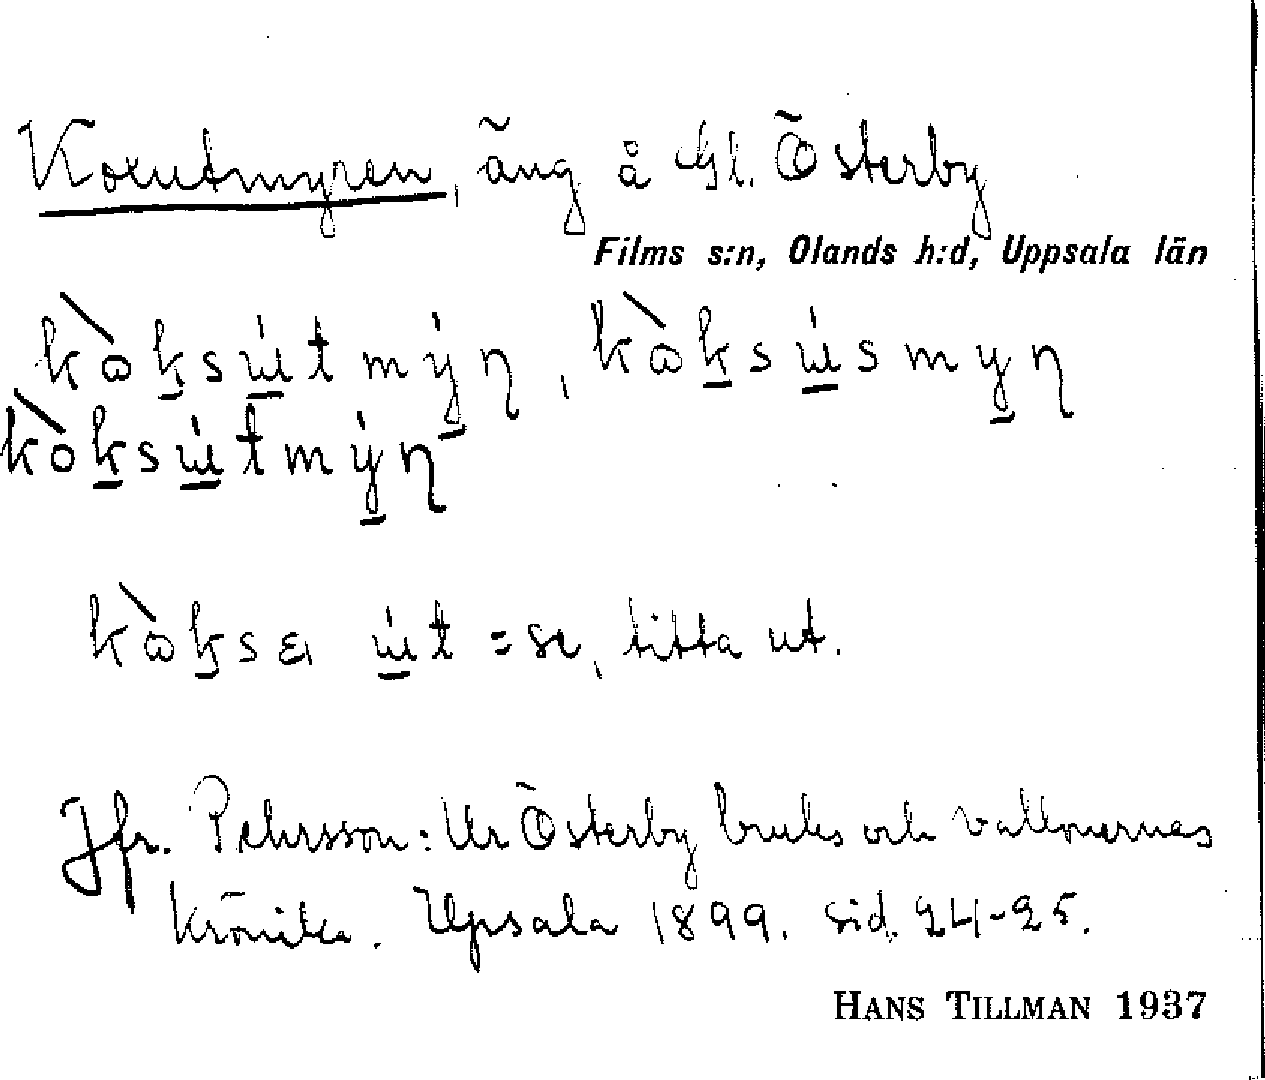 Koxutmyren, äng å Gl. Österby
Films s:n, Olands h:d, Uppsala län
kòksu̇tmẏŋ, kòksu̇smyŋ
kòksu̇tmẏŋ
kòksa u̇t = se, titta ut.
Jfr. Pehrsson: Ur Österby bruks och vallonernas
krönika. Upsala 1899. sid. 24-25.
HANS TILLMAN 1937